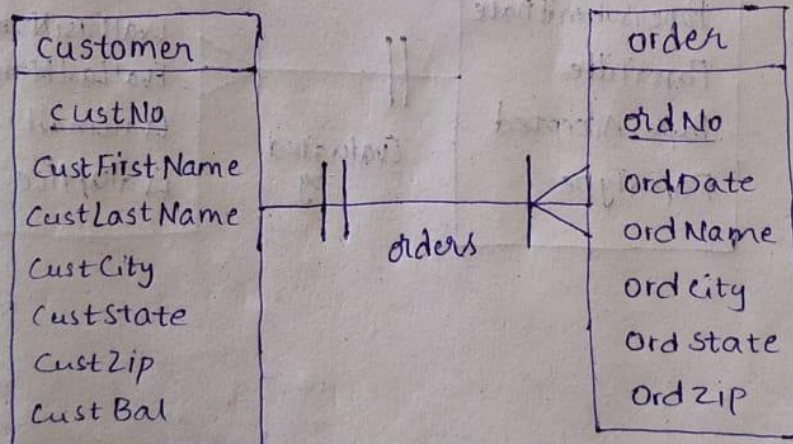 Customer
CustNo
CustFirstName
CustLastName
CustCity
CustState
CustZip
CustBal
orders
order
ordNo
OrdDate
OrdName
OrdCity
OrdState
OrdZip